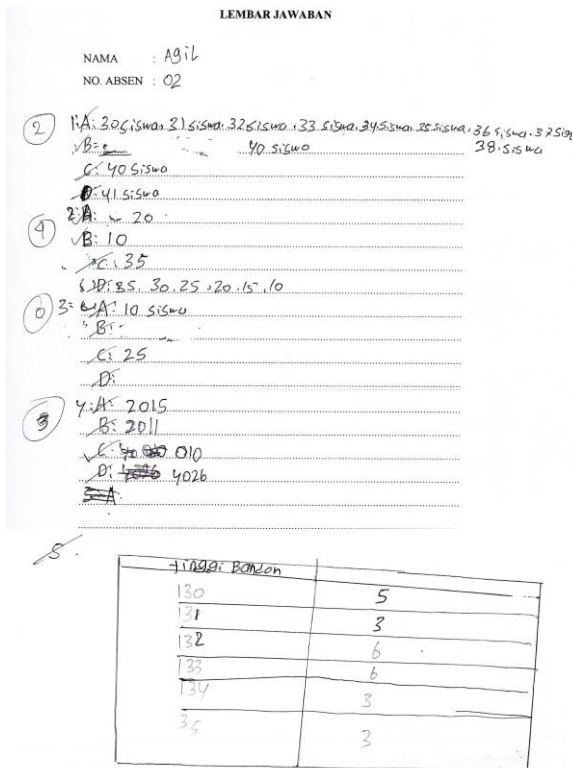 LEMBAR JAWABAN
NAMA : Agil
NO. ABSEN : 02
2 1: A: 30 siswa. 31 siswa. 32 siswa. 33 siswa. 34 siswa. 35 siswa. 36 siswa. 37 sis
B= 40 siswa 38. siswa
C: 40 siswa
D: 41 siswa
2: A: 20
4 B: 10
C: 35
D: 35. 30. 25. 20. 15. 10
0 3= A: 10 siswa
B:
C: 25
D:
4: A: 2015
3 B: 2011
C: 010
D: 4026
5 A:
5.
tinggi Bandan
130 5
131 3
132 6
133 6
134 3
35 3